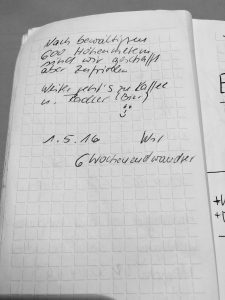 Nach bewältigten
600 Höhenmetern
sind wir geschafft
aber zufrieden
Weiter geht's zu Kaffee
u. Radler (Bier)
1.5.16 Wir
6 Wochenendwandrer